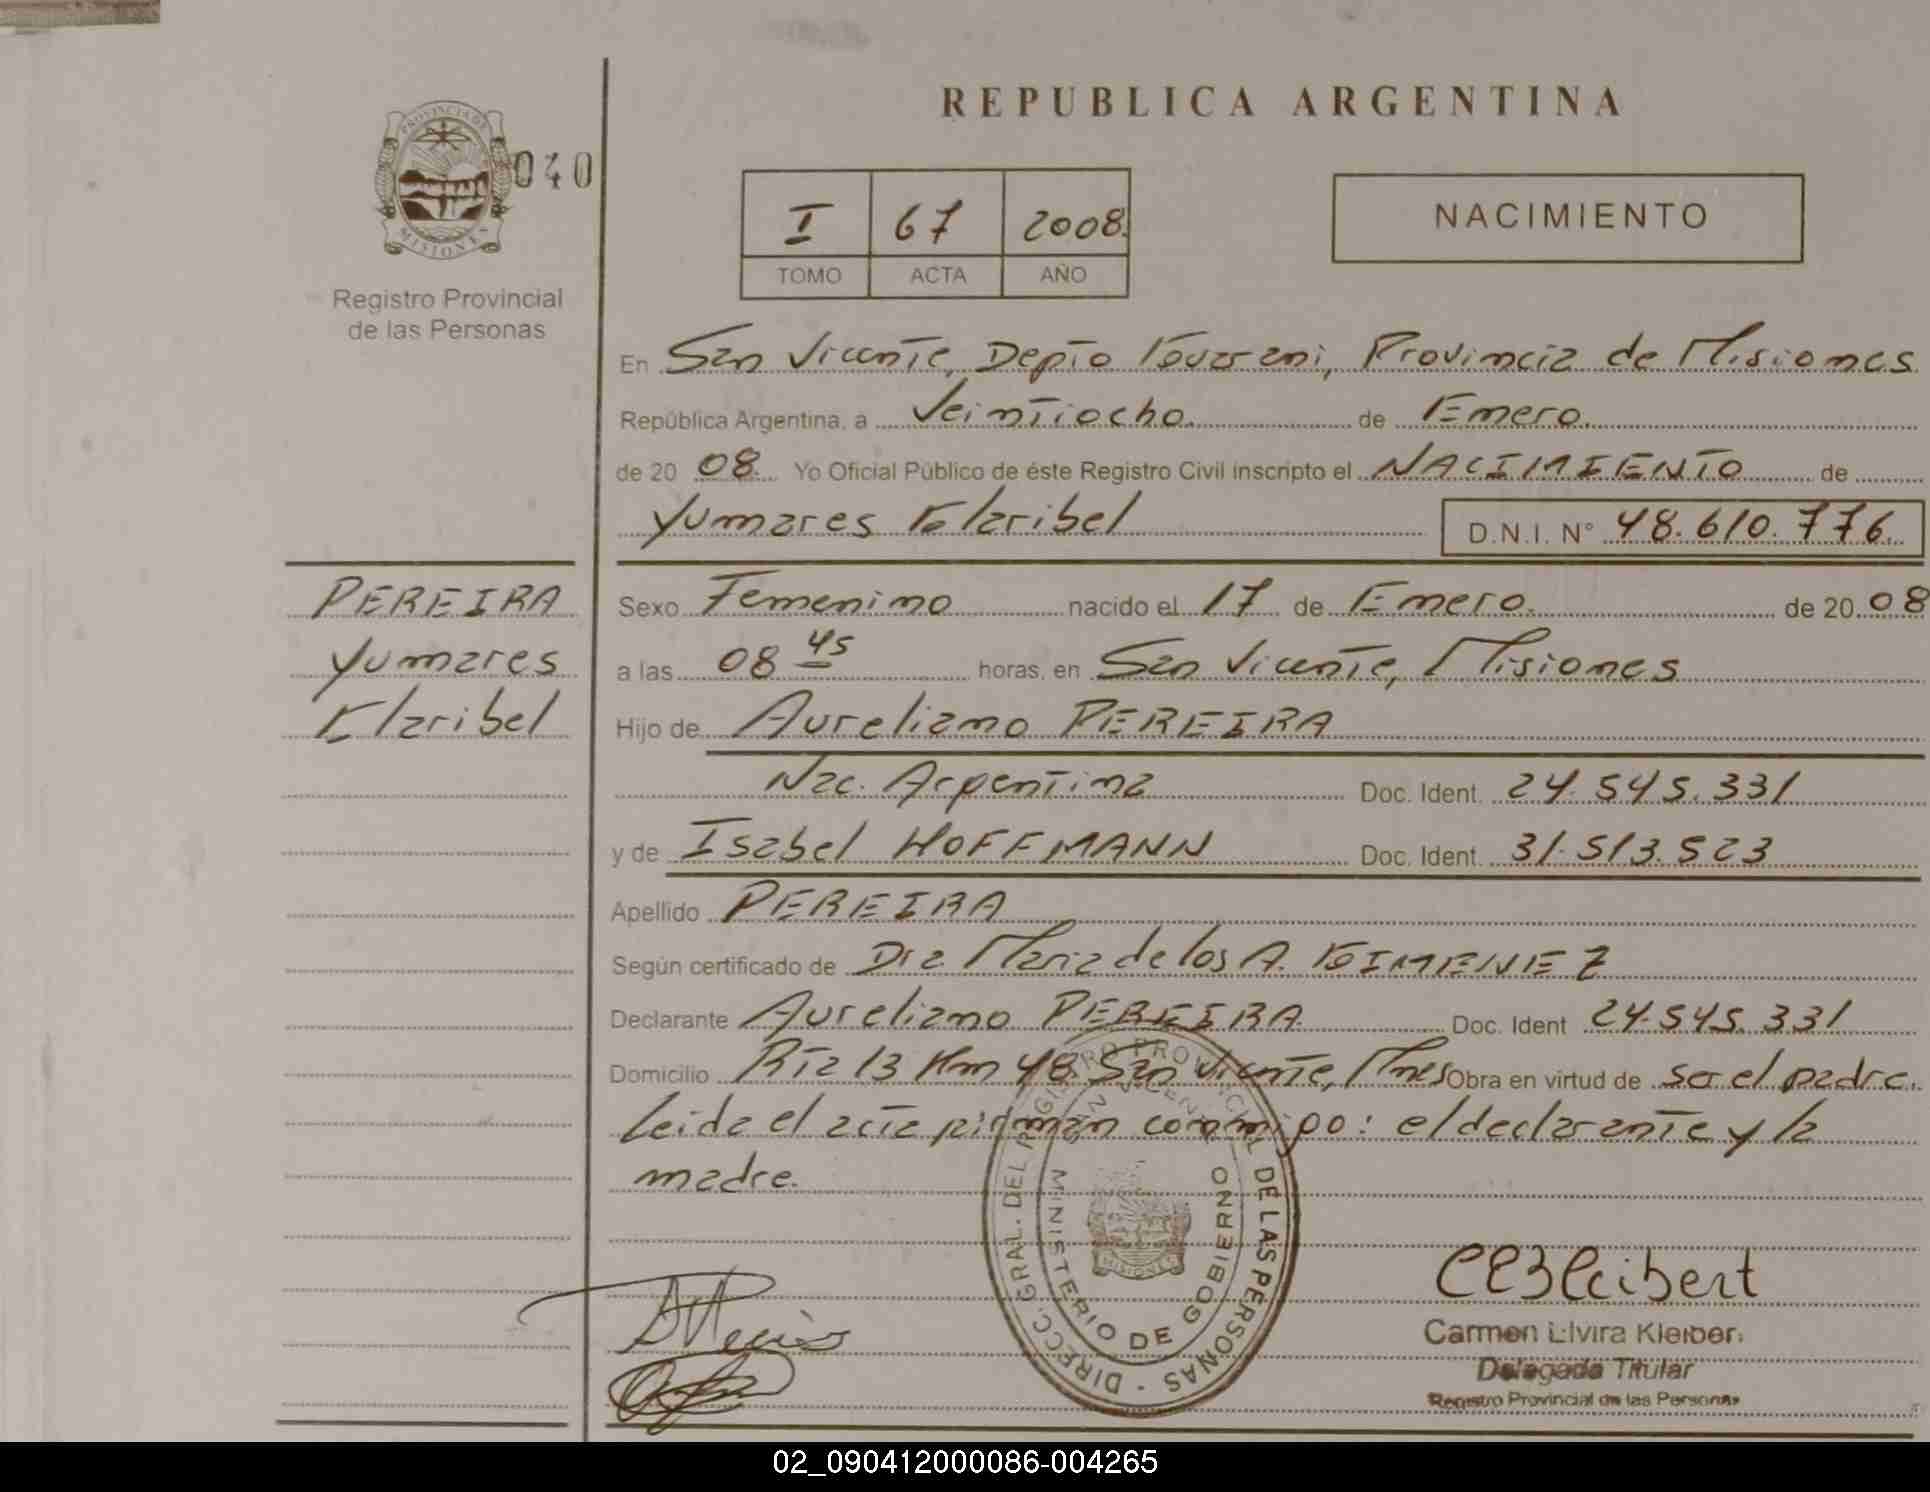 REPUBLICA ARGENTINA
PROVINCIA DE
MISIONES
040
Registro Provincial
de las Personas
I 67 2008.
TOMO ACTA AÑO
NACIMIENTO
En San Vicente, Depto Guarani, Provincia de Misiones
República Argentina, a Veintiocho. de Enero.
de 20 08. Yo Oficial Público de éste Registro Civil inscripto el NACIMIENTO de
Yumares Claribel D.N.I. N° 48.610.776.
PEREIRA
Yumares
Claribel
Sexo Femenino nacido el 17 de Enero. de 20 08
a las 08 45 horas, en San Vicente, Misiones
Hijo de Aureliano PEREIRA
Nac. Argentina Doc. Ident. 24.545.331
y de Isabel HOFFMANN Doc. Ident. 31.513.523
Apellido PEREIRA
Según certificado de Dra. Maria de los A. GIMENEZ
Declarante Aureliano PEREIRA Doc. Ident 24.545.331
Domicilio Rta 13 Km 48. San Vicente, Mnes Obra en virtud de ser el padre.
Leida el acta firman conmigo: el declarante y la
madre.
DIRECC. GRAL. DEL REGISTRO PROVINCIAL DE LAS PERSONAS
SAN VICENTE
MINISTERIO DE GOBIERNO
MISIONES
Carmen Elvira Kleiber.
Delegada Titular
Registro Provincial de las Personas
02_090412000086-004265